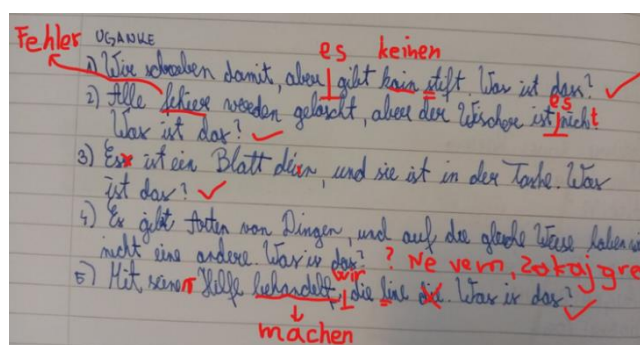 es keinen
Fehler UGANKE
1) Wir schreiben damit, aber gibt kein stift. Was ist dass?
es
2) Alle fehier werden gelöscht, aber der Wischere ist nicht
Was ist das?
3) Ess ist ein Blatt , und sie ist in der Tashe. Was
ist das?
4) Es gibt Arten von Dingen, und auf die gleiche Weise haben
nicht eine andere. Was is das? ? Ne vem, zakaj gre
wir
5) Mit seiner Hilfe behandelt, die line die. Was is das?
machen